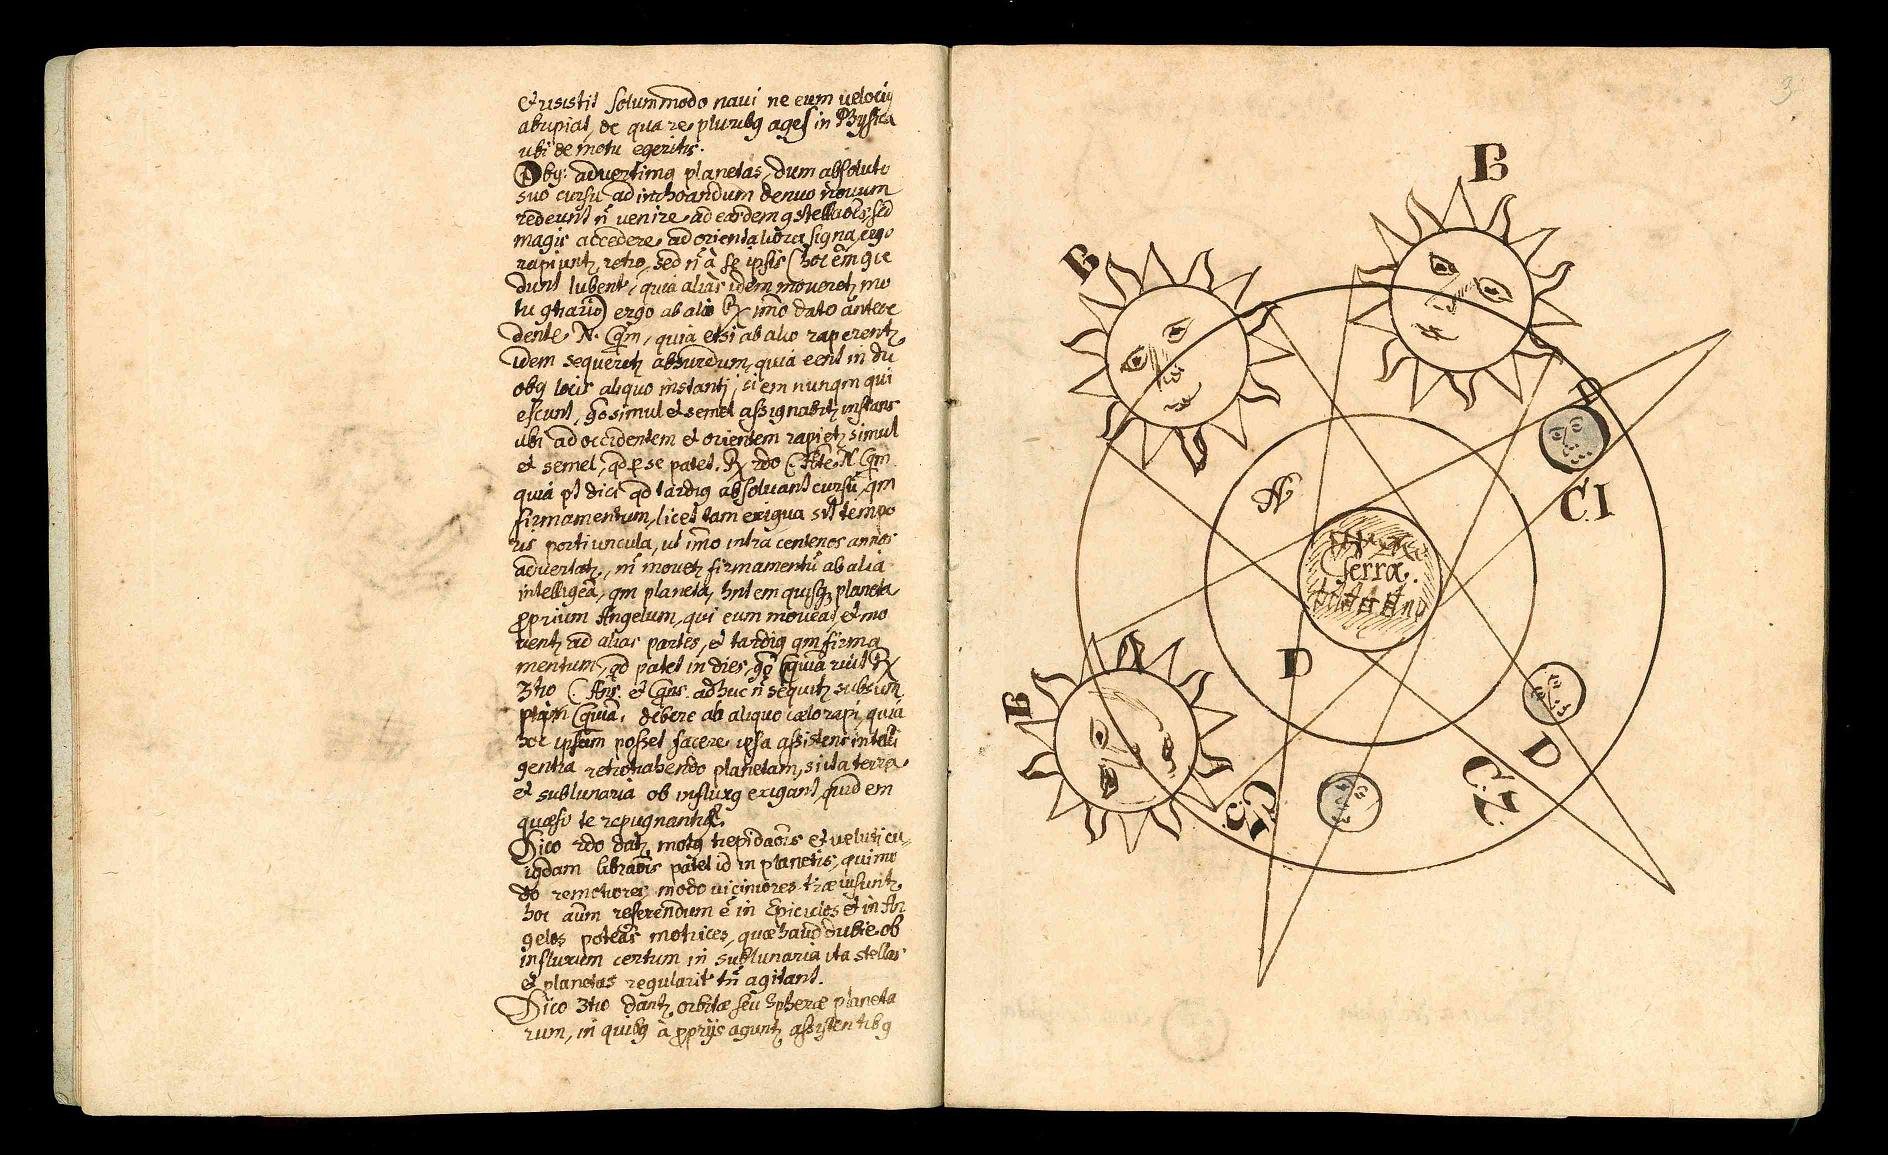 et resistit solummodo navi ne eum velociq
abripiat, de qua re pluribq ages in Physica
ubi de motu egeritis.
Obq: advertimq planetas, dum absoluto
suo cursu ad inchoandum denuo novum
redeunt n̄ venire ad eardem gstellaōēs sed
magis accedere ad orientaliora signa, ergo
rapiuntz retro, sed n̄ a se ipsis (hoc em gce
dunt lubent, quia alias idem moveretz mo
tu gtrario) ergo ab alio ℞ imo dato antece
dente N. Cqm, quia etsi ab alio raperentz
idem sequeretz absurdum, quia eent in du
obq locis aliquo instanti, si em nunqm qui
escunt, go simul et semel assignabitz instans
ubi ad occidentem et orientem rapietz simul
et semel, qd p se patet. ℞ 2do C. Ante N. Cqm
quia pt dici qd tardiq absolvant cursū qm
firmamentum, licet tam exigua sit tempo
ris portiuncula, ut imo intra centenos annos
advertatz, n̄ movetz firmamentū ab alia
intelligēa, qm planeta, hnt em quisqz planeta
proprium Angelum, qui eum moveat, et mo
ventz ad alias partes, et tardiq qm firma
mentum, qd patet in dies, go Cquia ruit ℞
3tio C. Ans. et Cqns. adhuc n̄ sequitz subsum
ptam Cquia, debere ab aliquo cælo rapi, quia
hoc ipsum posset facere ipsa assistens intelli
gentia retrahendo planetam, si ita terra
et sublunaria ob influxq exigant, quid em
quæso te repugnantiæ.
Dico 2do datz motq trepidaōīs et veluti cu-
iqdam libraōīs patet id in planetis, qui mo
do remotiores modo viciniores træ visuntz
hoc aūm referendum ē in Epiciclos et in An
gelos poteās motrices, quæ haud dubie ob
influxum certum in sublunaria ita stellas
et planetas regularit tn̄ agitant.
Dico 3tio dantz orbitæ seu Spheræ planeta
rum, in quibq à proprijs aguntz assistentibq
3
B
B
D
CI
A
Terra.
D
B
D
C2
C3